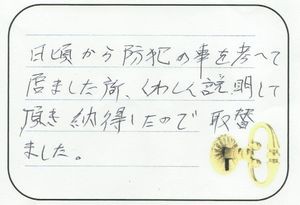 日頃から防犯の事を考へて
居ました所、くわしく説明して
頂き納得したので取替
ました。